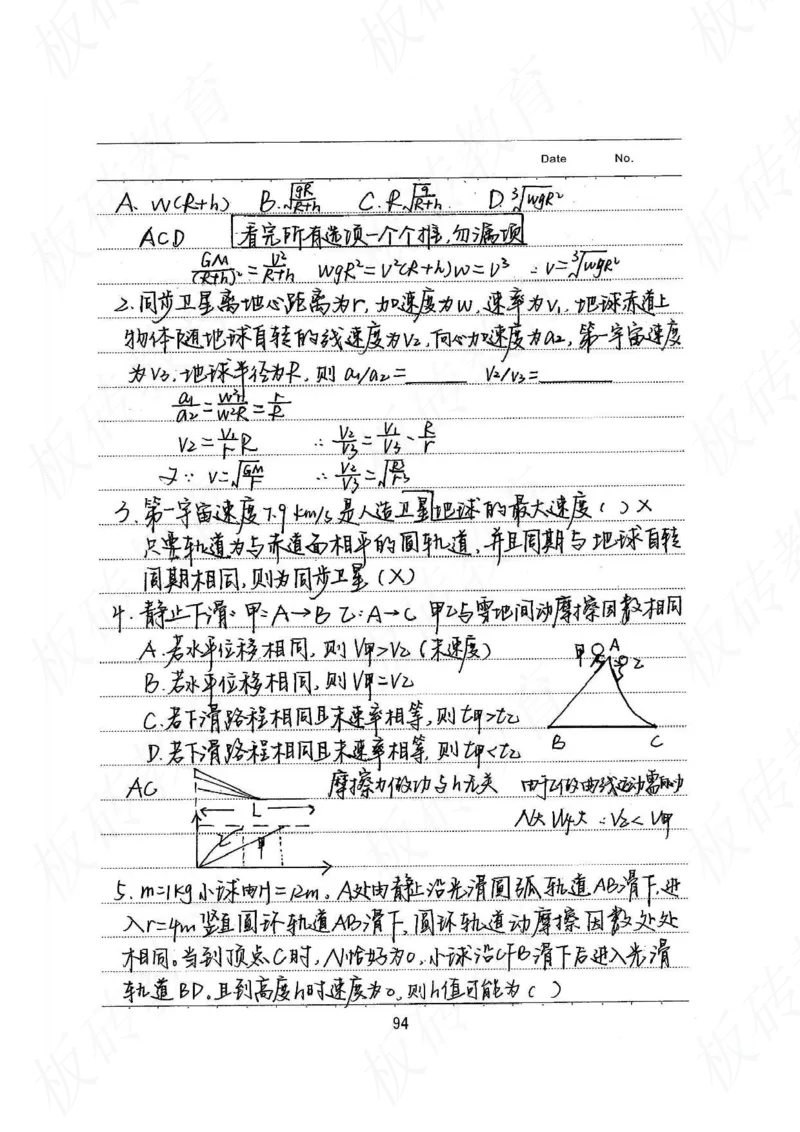 Date No.
A. W(R+h) B. √(gR/R+h) C. R√(g/R+h) D. ³√(WgR²)
ACD 看完所有选项一个个推,勿漏项
GM/(R+h)² = V²/R+h WgR²=V²(R+h)W=V³ ∴V=³√(WgR²)
2.同步卫星离地心距离为r,加速度为W,速率为V₁,地球赤道上
物体随地球自转的线速度为V₂,向心加速度为a₂,第一宇宙速度
为V₃,地球半径为R,则 a₁/a₂=______ V₂/V₃=______
a₁/a₂ = W²r/W²R = r/R
V₂=V₁/r R ∴V₂/V₃=V₁/V₃·R/r
又∵ V=√(GM/r) ∴V₂/V₃=√(R³/r³)
3.第一宇宙速度7.9km/s是人造卫星地球的最大速度( )X
只要轨道为与赤道面相平的圆轨道,并且周期与地球自转
周期相同,则为同步卫星(X)
4.静止下滑:甲:A→B 乙:A→C 甲乙与雪地间动摩擦因数相同
A.若水平位移相同,则V甲>V乙(末速度)
B.若水平位移相同,则V甲=V乙
C.若下滑路程相同且末速率相等,则t甲>t乙
D.若下滑路程相同且末速率相等,则t甲<t乙
甲 A 乙
B C
AC 摩擦力做功与h无关 由于乙做曲线运动需向心力
L
N大 Wf大 ∴V乙<V甲
乙 甲
5.m=1kg小球由H=12m。A处由静止沿光滑圆弧轨道AB滑下,进
入r=4m竖直圆环轨道AB滑下,圆环轨道动摩擦因数处处
相同。当到顶点C时,N恰好为0,小球沿CFB滑下后进入光滑
轨道BD。且到高度h时速度为0,则h值可能为( )
94
板砖教育